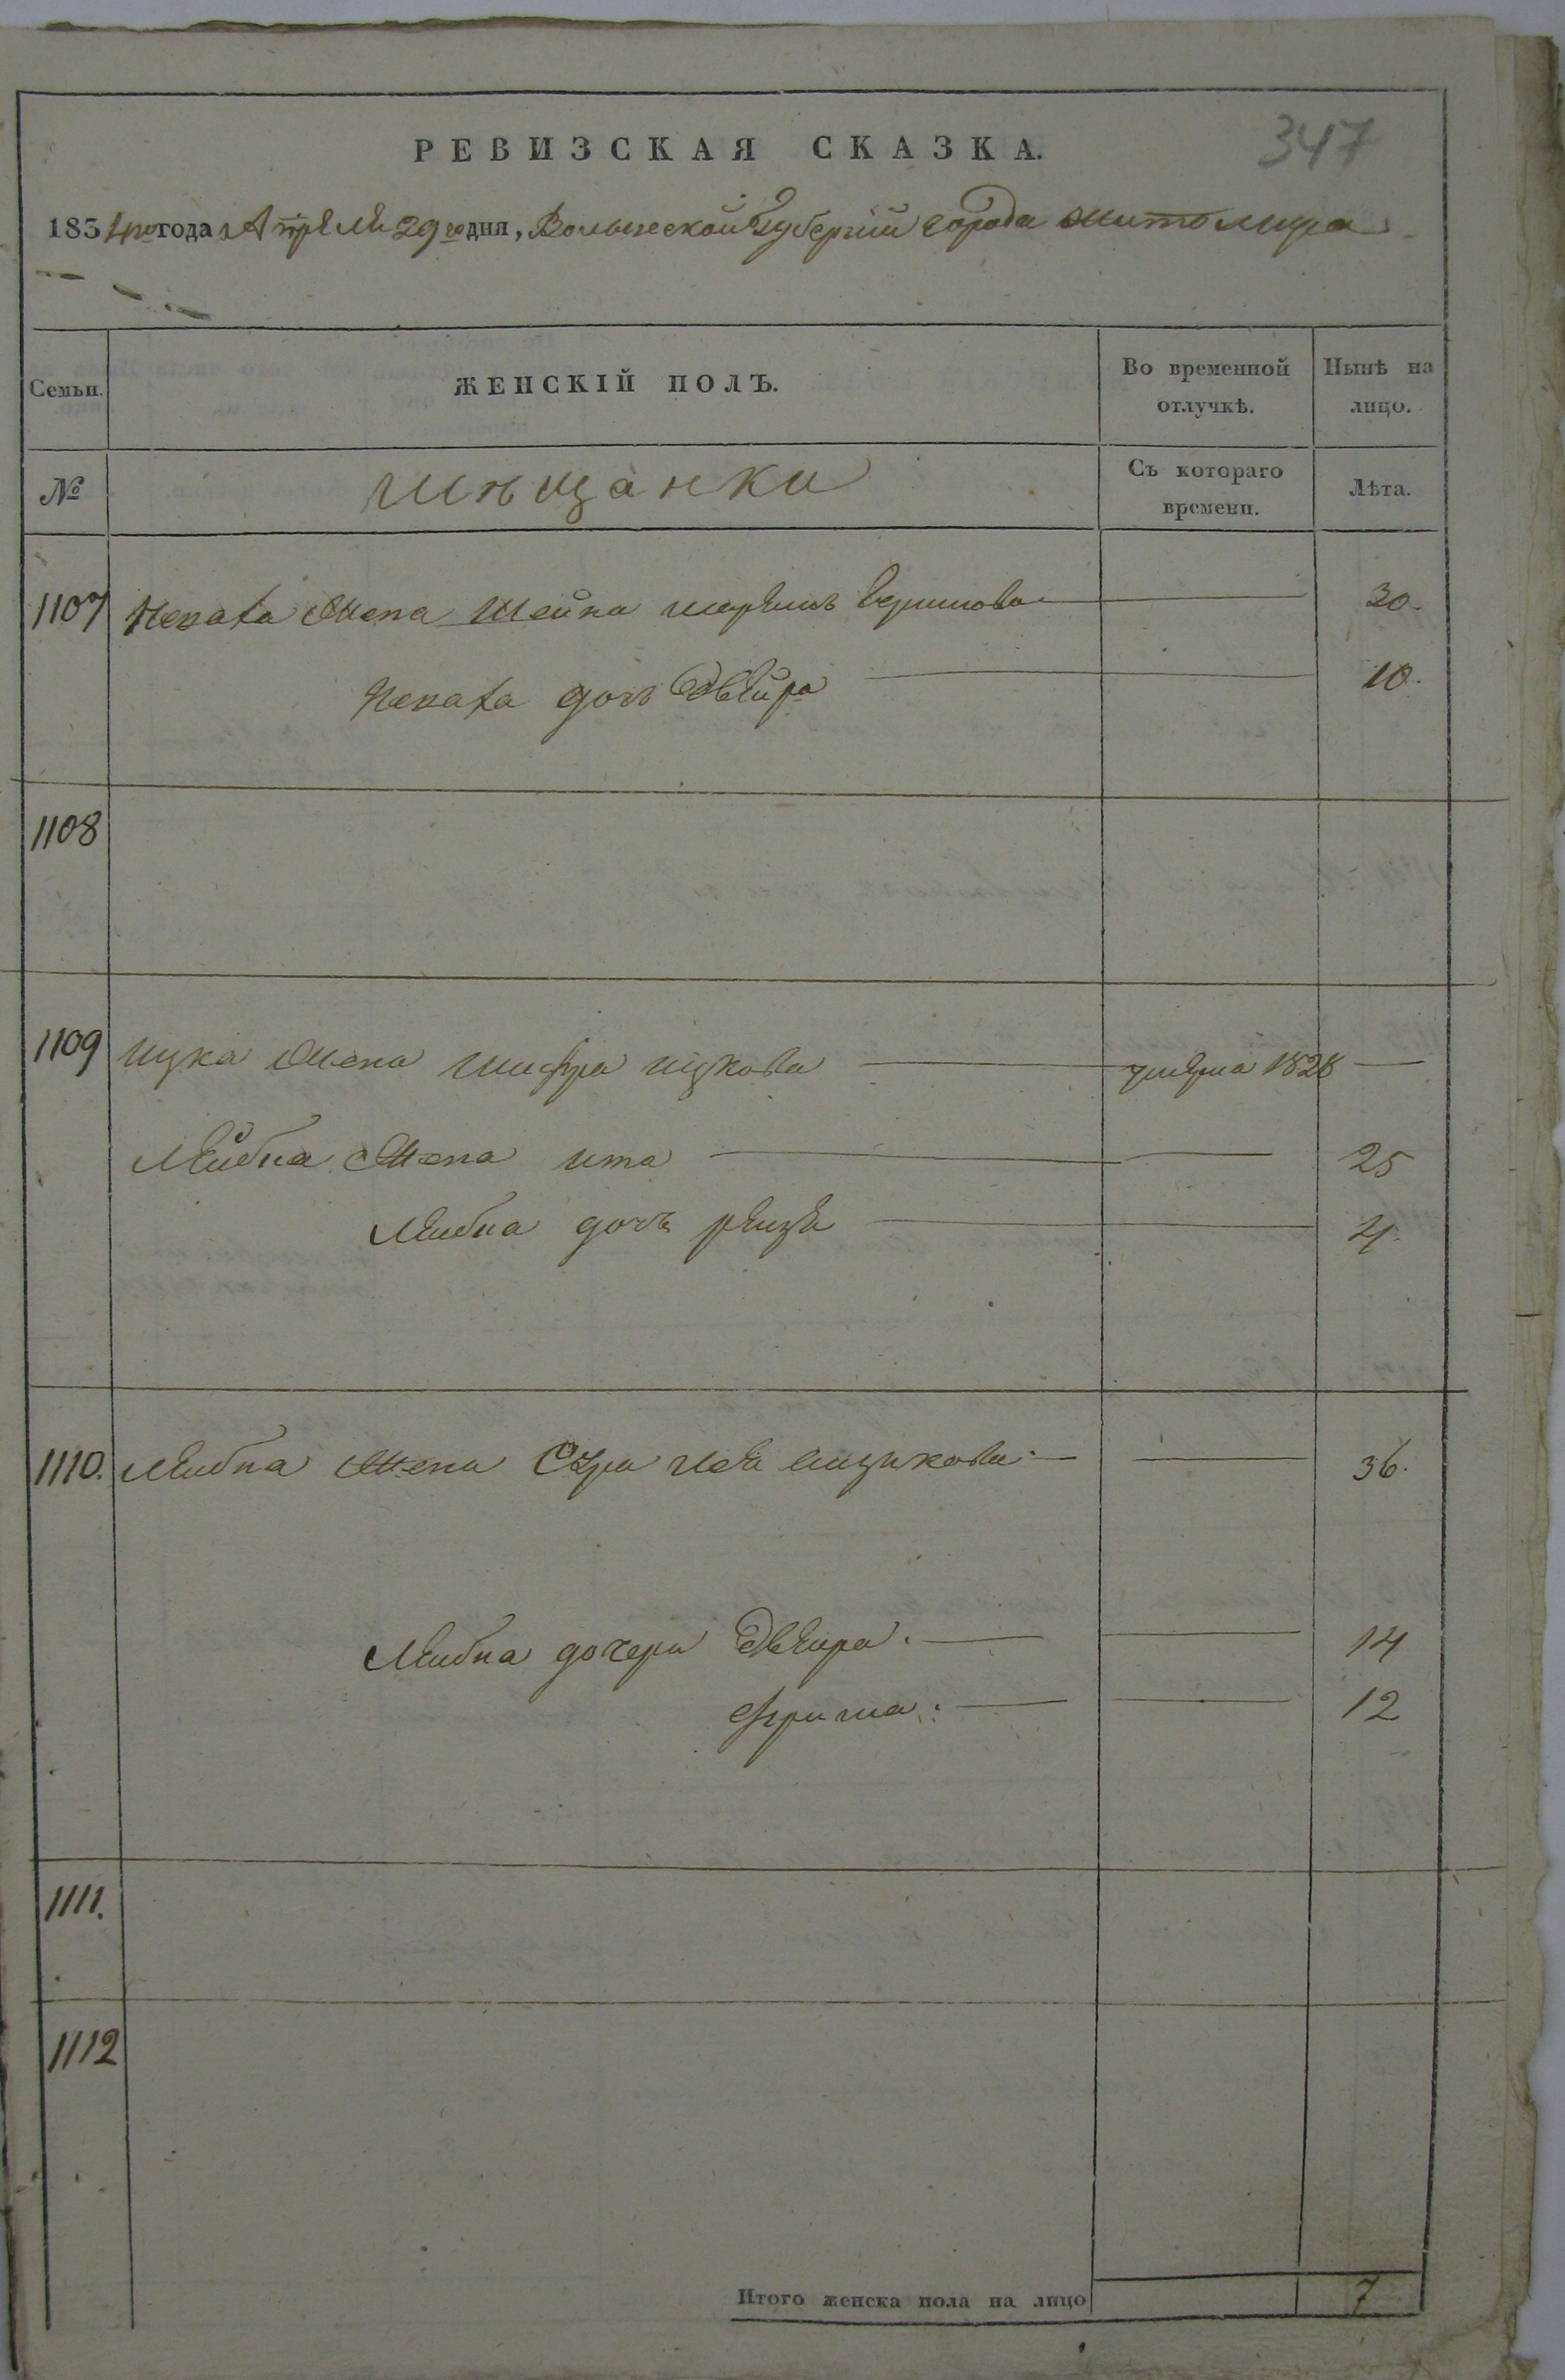 347
РЕВИЗСКАЯ СКАЗКА.
1834го года Апреля 29го дня, Волынской Губернии города Житомира
Семьи. ЖЕНСКІЙ ПОЛЪ. Во временной отлучкѣ. Нынѣ на лицо.
№ мѣщанки Съ котораго времени. Лѣта.
1107 жена Шейна 30.
дочь Двейра 10.
1108
1109 Ицка жена Шифра ицкова умерла 1828
Лейбиа жена ита 25
Лейбиа дочь рейзя 4.
1110. Лейбиа жена Сура лея 36.
Лейбиа дочери Двейра. 14
фрима. 12
1111.
1112
Итого женска пола на лицо 7